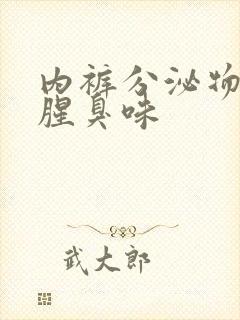 内裤分泌物
腥臭味
武大郎